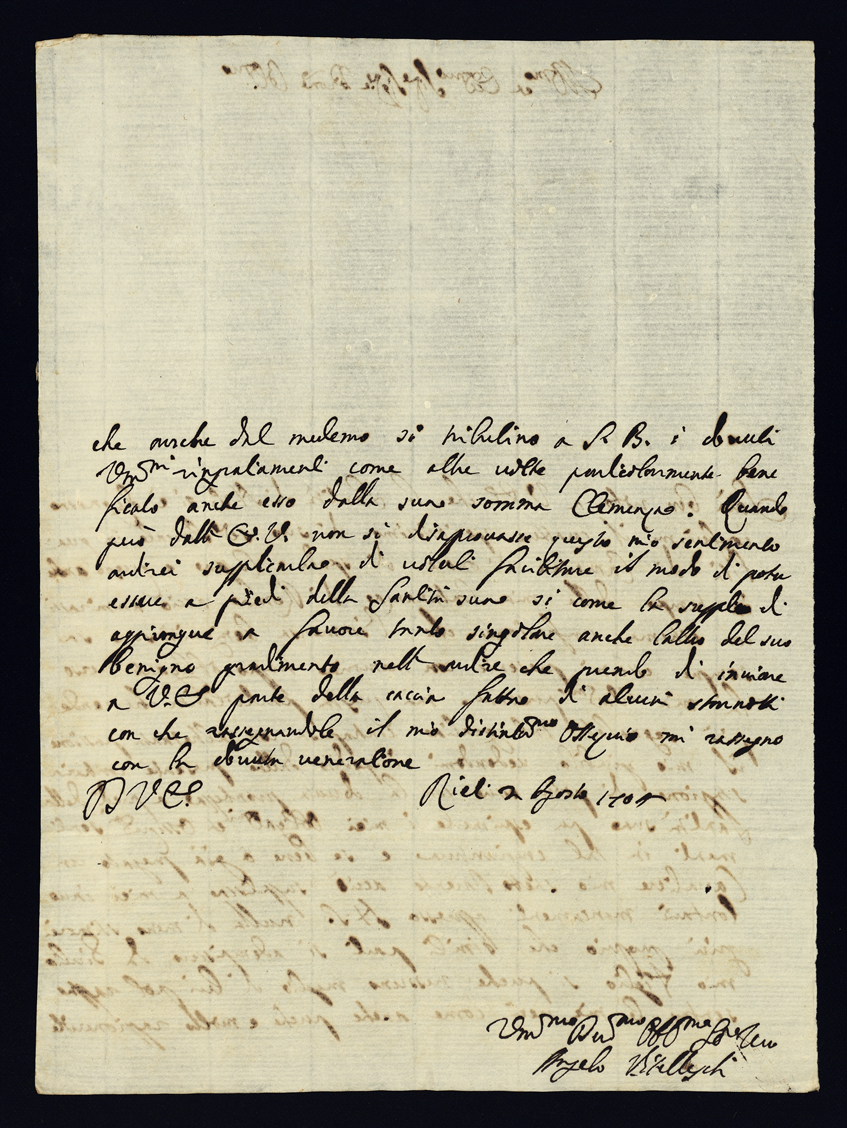 che anche dal medemo si tributino a S. B. i dovuti
Um.mi ringratiamenti come altre volte particolarmente bene
ficato anche esso dalla sua somma Clemenza. Quando
però dall' E. V. non si disaprovasse questo mio sentimento
ardirei supplicarla di volerli facilitare il modo di poter
essere a piedi della Santità sua si come la supplico di
aggiongere a favore tanto singolare anche l'altro del suo
benigno gradimento nell' ardire che prendo di inviare
a V. E. parte della caccia fatta di alcuni starnotti
con che rassegnandole il mio distintis.mo Ossequio mi rassegno
con la dovuta veneratione
D V E. Rieti 2 Agosto 1705
Um.mo Div.mo Obb.mo Ser.re Vero
Angelo Vitelleschi